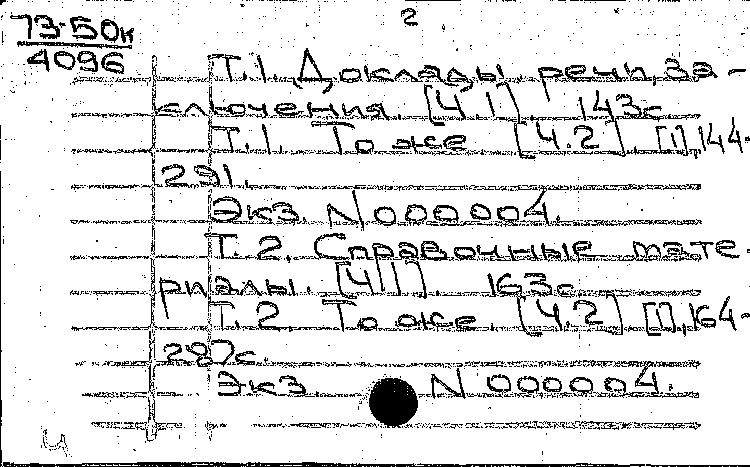 2
73-50к
4096
Т.1. Доклады, речи, за-
ключения. [Ч.1]. 143с
Т.1. То же [Ч.2]. [1],144-
291.
Экз. N000004.
Т.2. Справочные мате-
риалы. [Ч11]. 163с
Т.2. То же. [Ч.2] [1],164-
287с.
Экз. N000004.